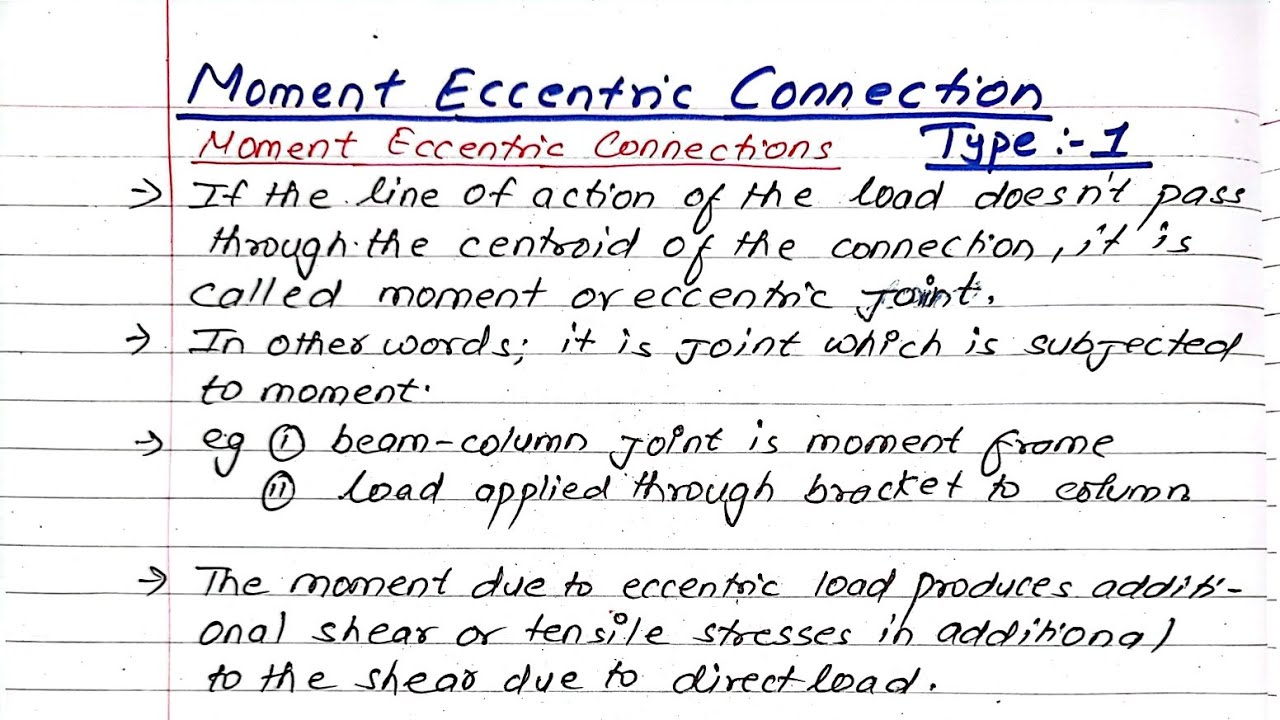 Moment Eccentric Connection
Moment Eccentric Connections Type :- 1
→ If the line of action of the load doesn't pass
through the centroid of the connection, it is
called moment or eccentric joint.
→ In other words; it is joint which is subjected
to moment.
→ eg (i) beam-column joint is moment frame
(ii) load applied through bracket to column
→ The moment due to eccentric load produces additi-
onal shear or tensile stresses in additional
to the shear due to direct load.